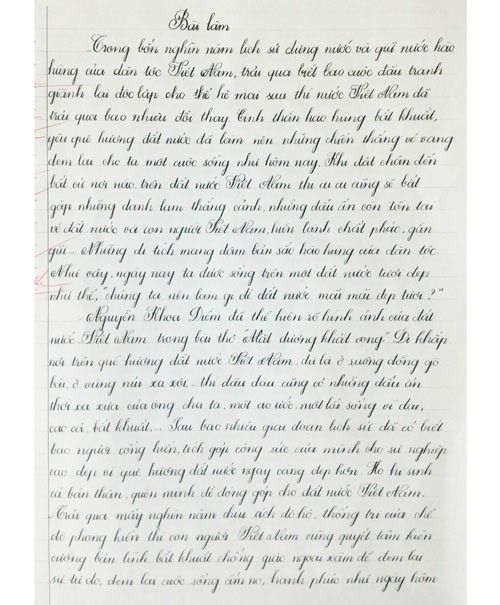 Bài làm
Trong bốn nghìn năm lịch sử dựng nước và giữ nước hào
hùng của dân tộc Việt Nam, trải qua biết bao cuộc đấu tranh
giành lại độc lập cho thế hệ mai sau thì nước Việt Nam đã
trải qua bao nhiêu đổi thay. Tinh thần hào hùng bất khuất,
yêu quê hương đất nước đã làm nên những chiến thắng vẻ vang
đem lại cho ta một cuộc sống như hôm nay. Khi đặt chân đến
bất cứ nơi nào trên đất nước Việt Nam thì ai ai cũng sẽ bắt
gặp những danh lam thắng cảnh, những dấu ấn còn tồn tại
về đất nước và con người Việt Nam, hiền lành chất phác, gần
gũi... Những di tích mang đậm bản sắc hào hùng của dân tộc.
Như vậy, ngày nay ta được sống trên một đất nước tươi đẹp
như thế, "chúng ta nên làm gì để đất nước mãi mãi đẹp tươi?"
Nguyễn Khoa Điềm đã thể hiện rõ hình ảnh của đất
nước Việt Nam trong bài thơ "Mặt đường khát vọng". Đi khắp
nơi trên quê hương đất nước Việt Nam, dù là ở ruộng đồng gò
bãi, ở vùng núi xa xôi... thì đâu đâu cũng có những dấu ấn
thời xa xưa của ông cha ta, một ao ước, một lối sống vĩ đại,
cao cả, bất khuất,... Sau bao nhiêu giai đoạn lịch sử đã có biết
bao người cống hiến, tích góp công sức của mình cho sự nghiệp
cao đẹp vì quê hương đất nước ngày càng đẹp hơn. Họ hi sinh
cả bản thân, quên mình để đóng góp cho đất nước Việt Nam.
Trải qua mấy nghìn năm chịu ách đô hộ, thống trị của chế
độ phong kiến thì con người Việt Nam cũng quyết tâm kiên
cường bản lĩnh, bất khuất chống giặc ngoại xâm để đem lại
sự tự do, đem lại cuộc sống ấm no, hạnh phúc như ngày hôm